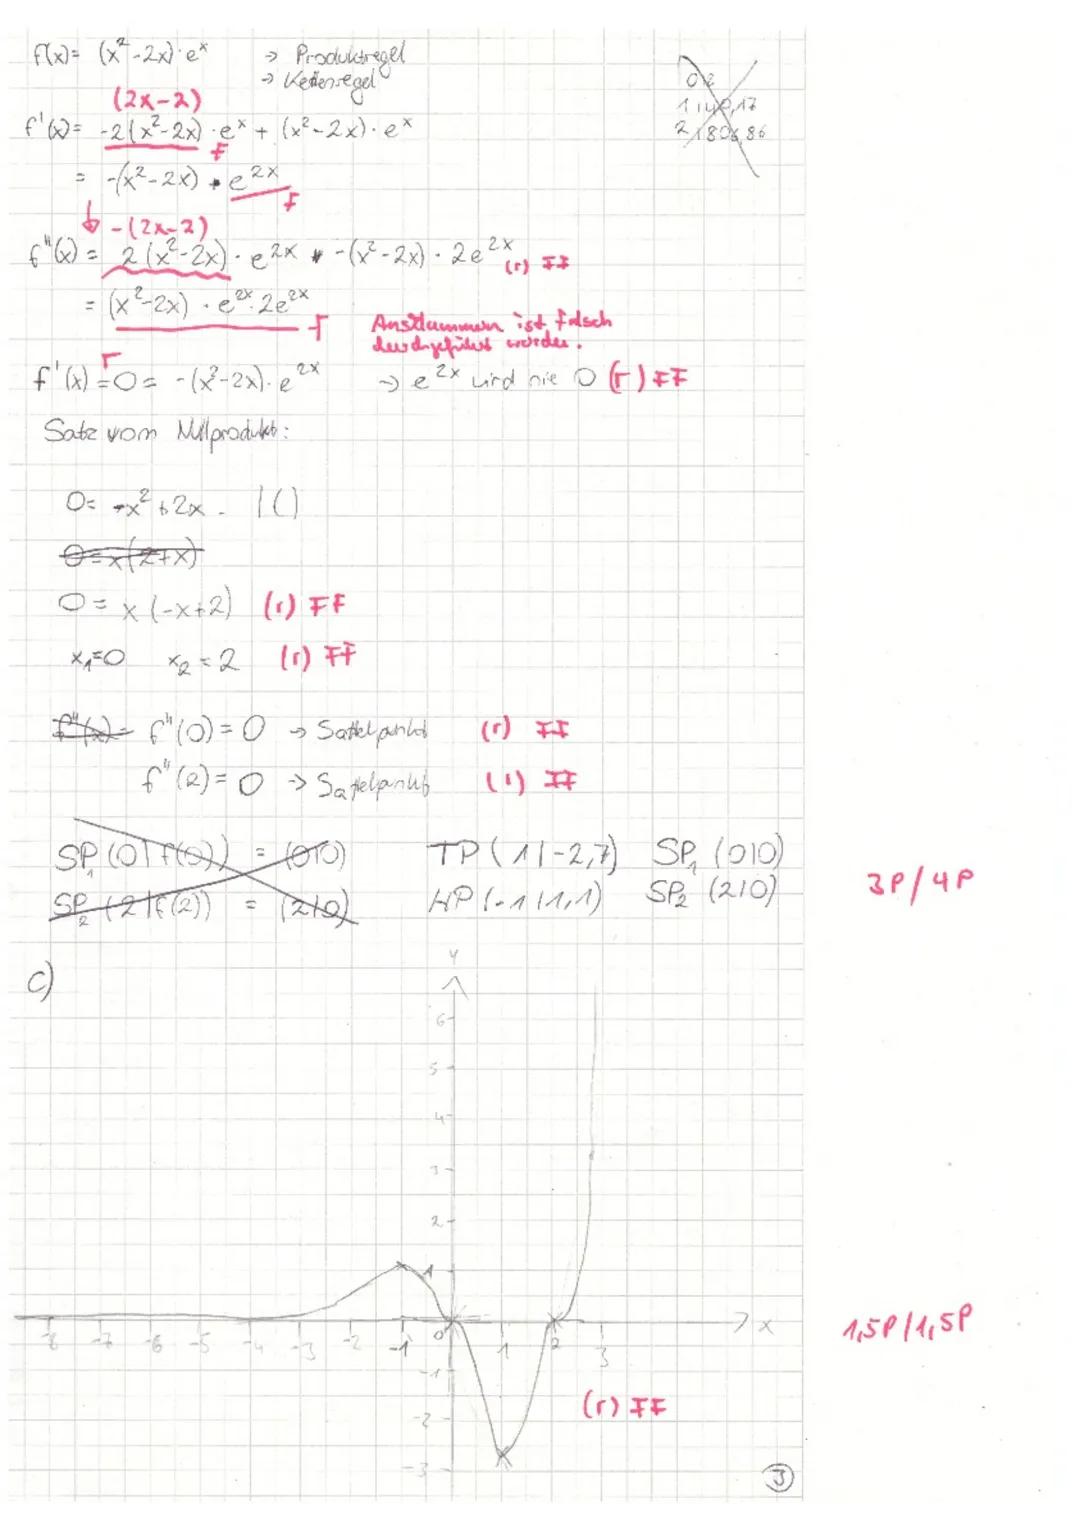 f(x) = (x²-2x)·eˣ → Produktregel
→ Kettenregel
(2x-2)
f'(x) = -2(x²-2x)·eˣ + (x²-2x)·eˣ
F
= -(x²-2x)·e²ˣ
F
↓ -(2x-2)
f"(x) = 2(x²-2x)·e²ˣ + -(x²-2x)·2e²ˣ (r) FF
= (x²-2x)·e²ˣ·2e²ˣ
F
Ausklammern ist falsch
durchgeführt worden.
r
f'(x) = 0 = -(x²-2x)·e²ˣ → e²ˣ wird nie 0 (r) FF
Satz vom Nullprodukt:
0 = -x²+2x | ()
0 = x(2+x)
0 = x(-x+2) (r) FF
x₁=0 x₂=2 (r) FF
f"(x) = f"(0) = 0 → Sattelpunkt (r) FF
f"(2) = 0 → Sattelpunkt (r) FF
SP₁(0|f(0)) = (0|0) TP(1|-2,7) SP₁(0|0)
SP₂(2|f(2)) = (2|0) HP(-1|1,1) SP₂(2|0)
3P/4P
c)
y
6
5
4
3
2
1
-8 -7 -6 -5 -4 -3 -2 -1 0 1 2 3 x
1,5P/1,5P
-1
(r) FF
-2
-3
3